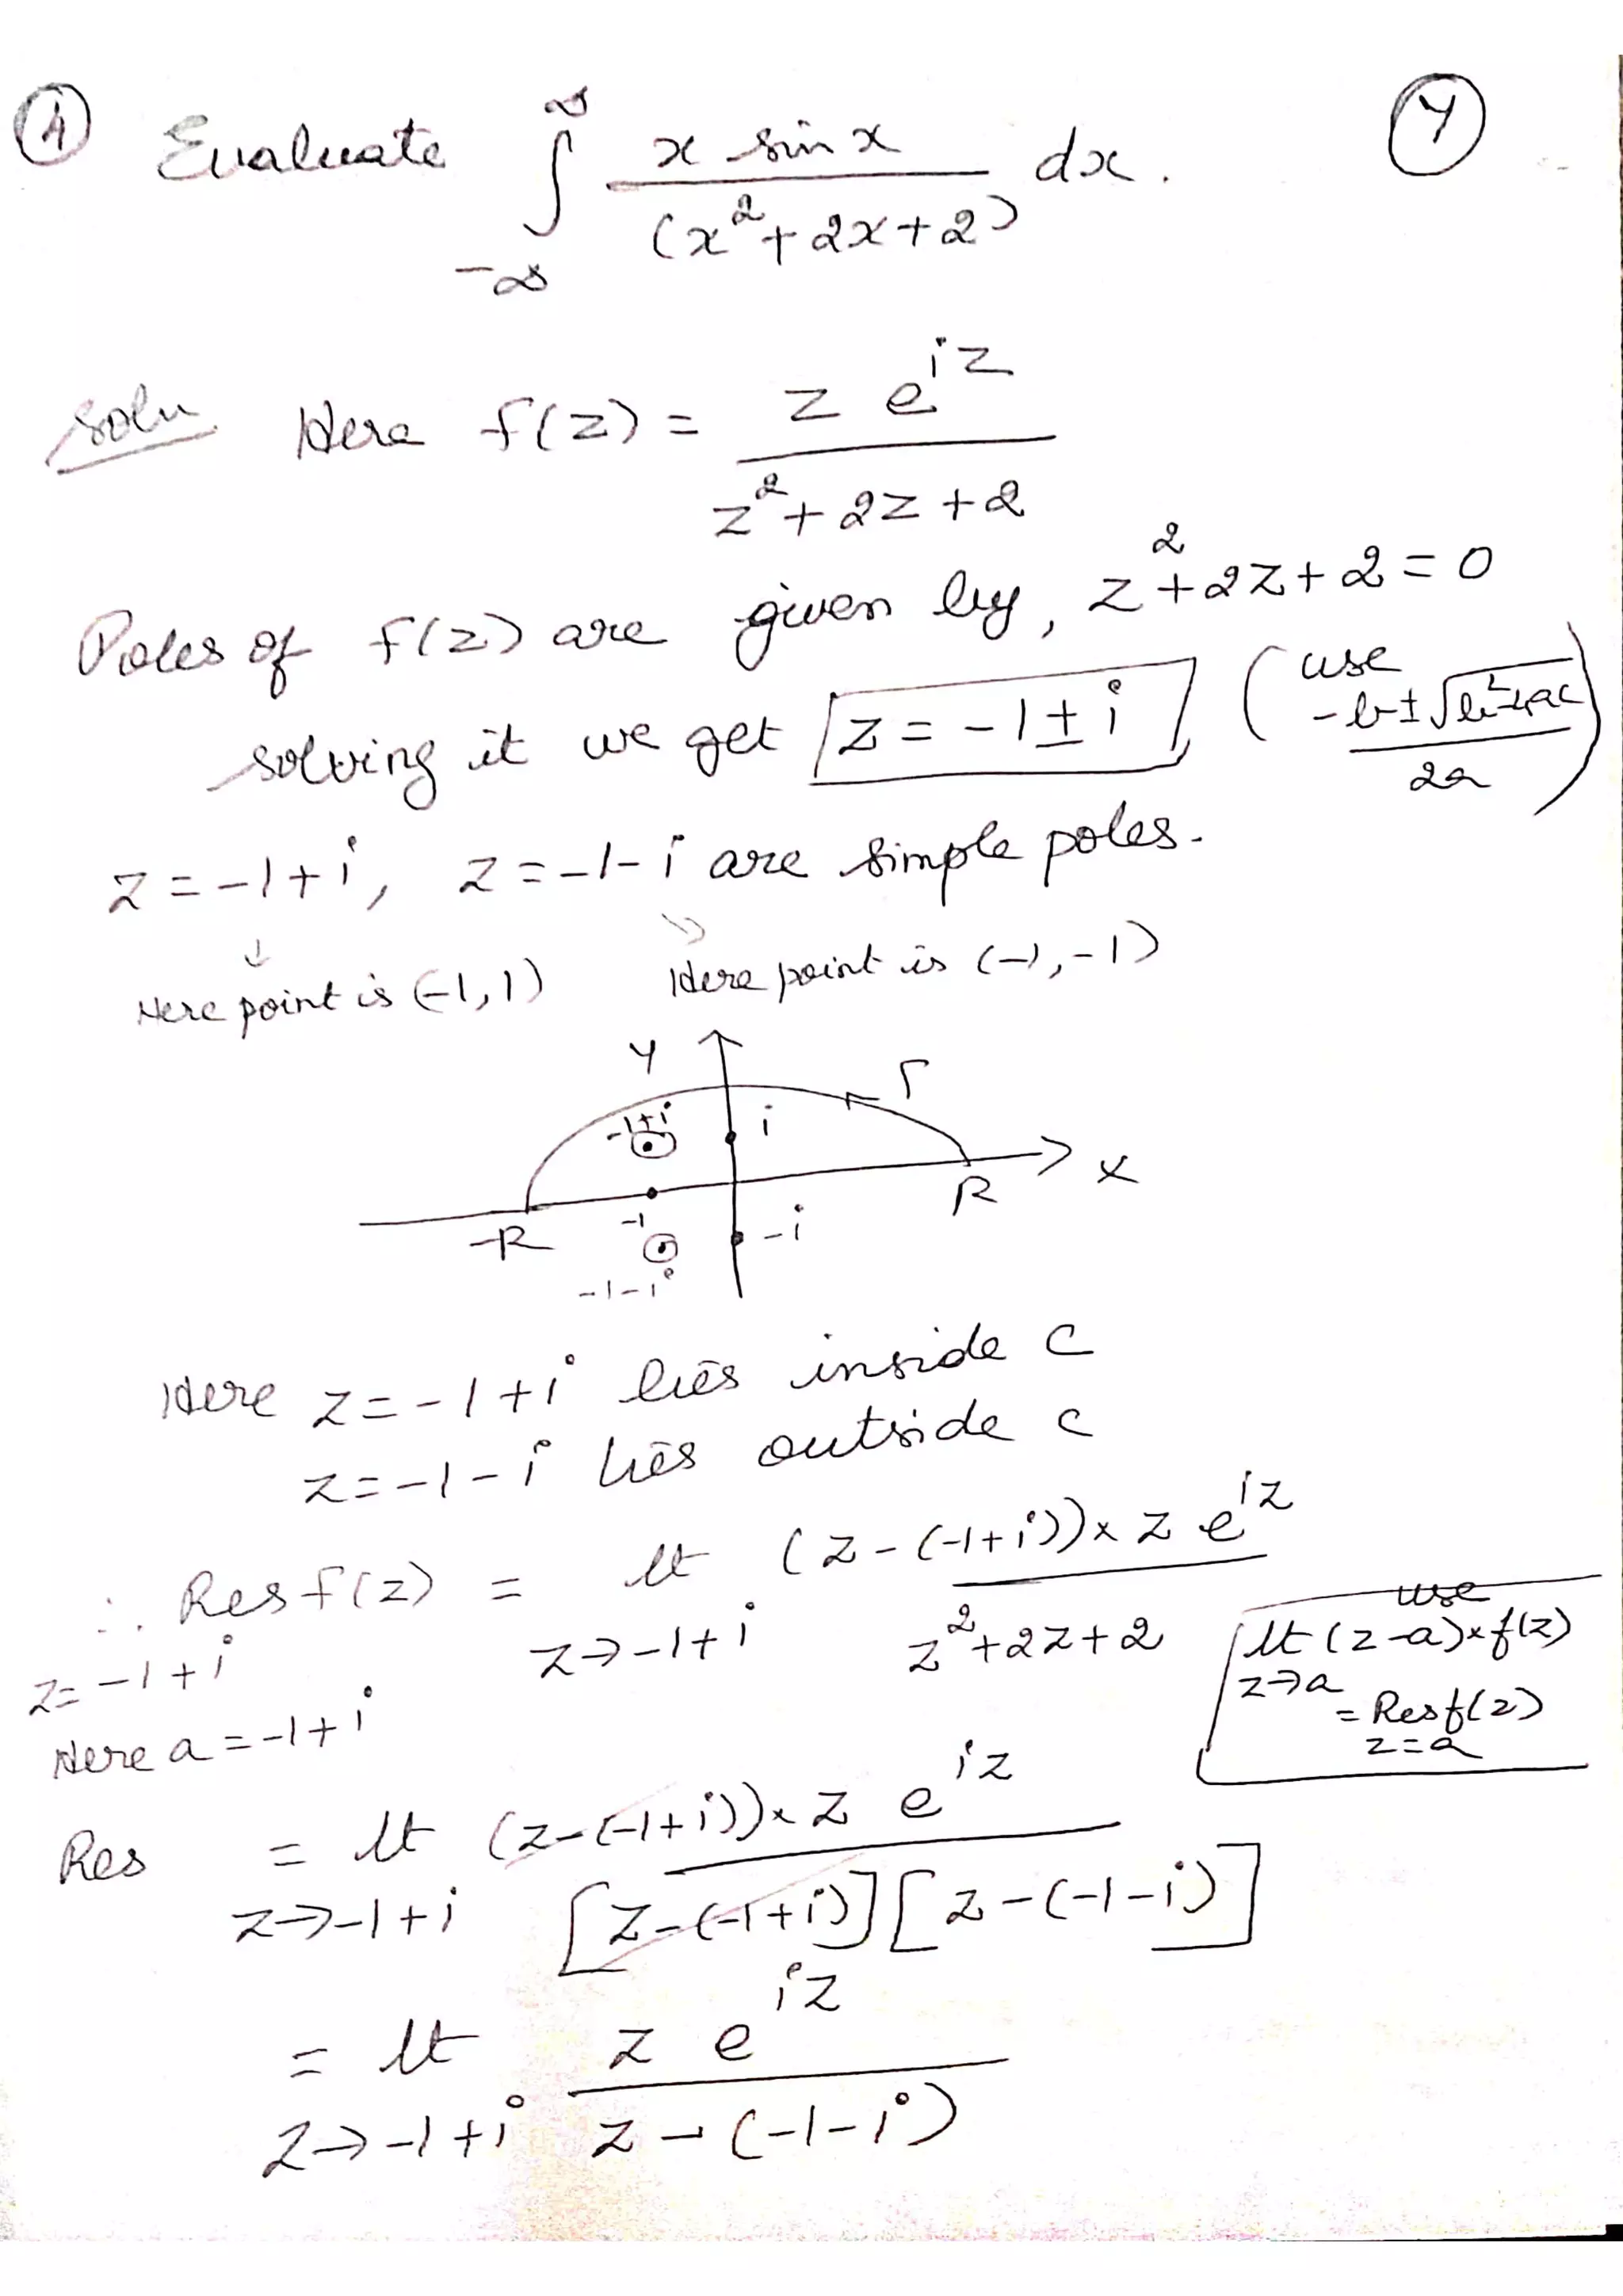 ④ Evaluate ∫_{-∞}^{∞} x sin x / (x²+2x+2) dx. (4)
Soln. Here f(z) = z e^{iz} / z²+2z+2
Poles of f(z) are given by, z²+2z+2=0
solving it we get z = -1±i, (use -b±√b²-4ac / 2a)
z = -1+i, z = -1-i are simple poles.
↓ ↘
Here point is (-1,1) Here point is (-1,-1)
Y
Γ
-1+i i
X
-R -1 R
-i
-1-i
Here z=-1+i lies inside C
z=-1-i lies outside C
∴ Res f(z) = lt (z-(-1+i))× z e^{iz} / z²+2z+2
z=-1+i z→-1+i
Here a = -1+i
use
lt (z-a)×f(z)
z→a
= Res f(z)
z=a
Res = lt (z-(-1+i))× z e^{iz} / [z-(-1+i)][z-(-1-i)]
z→-1+i
= lt z e^{iz} / z-(-1-i)
z→-1+i